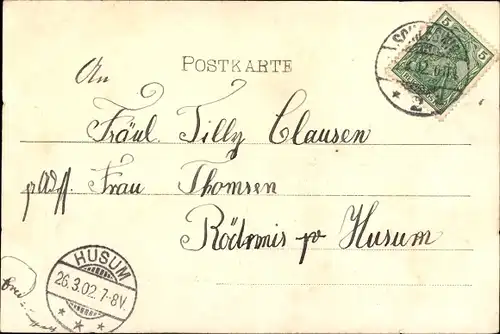 POSTKARTE
5 5
SCHLESWIG
* 2
An
Fräul. Tilly Clausen
p Adß. Frau Thomsen
Rödemis pr Husum
HUSUM
26.3.02.7-8V
* * *